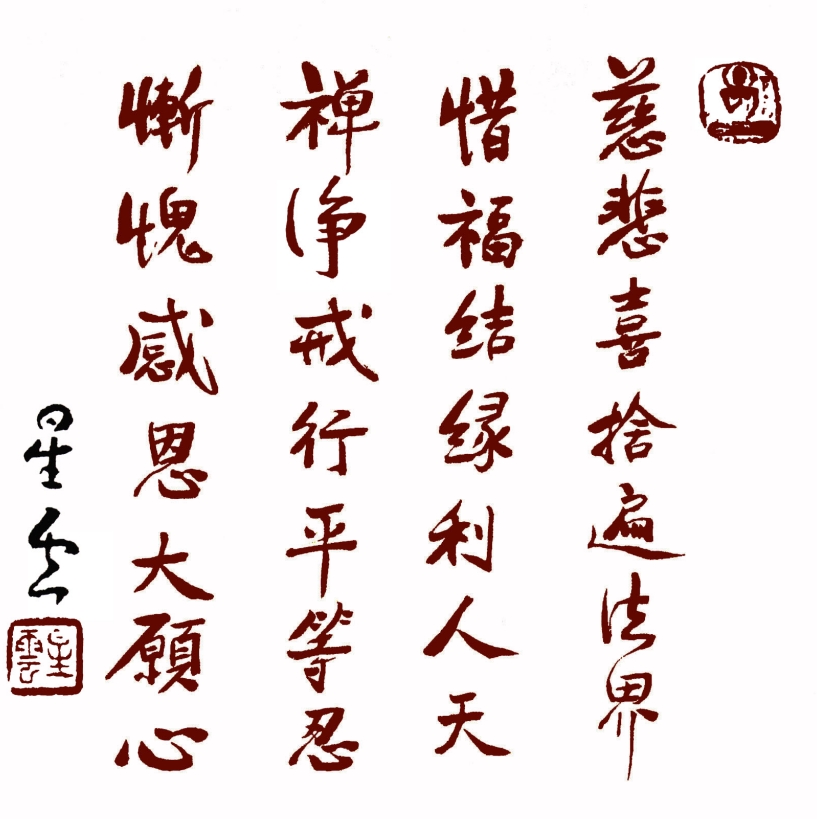 慈悲喜捨遍法界
惜福结缘利人天
禅净戒行平等忍
慚愧感恩大願心
星云
星雲